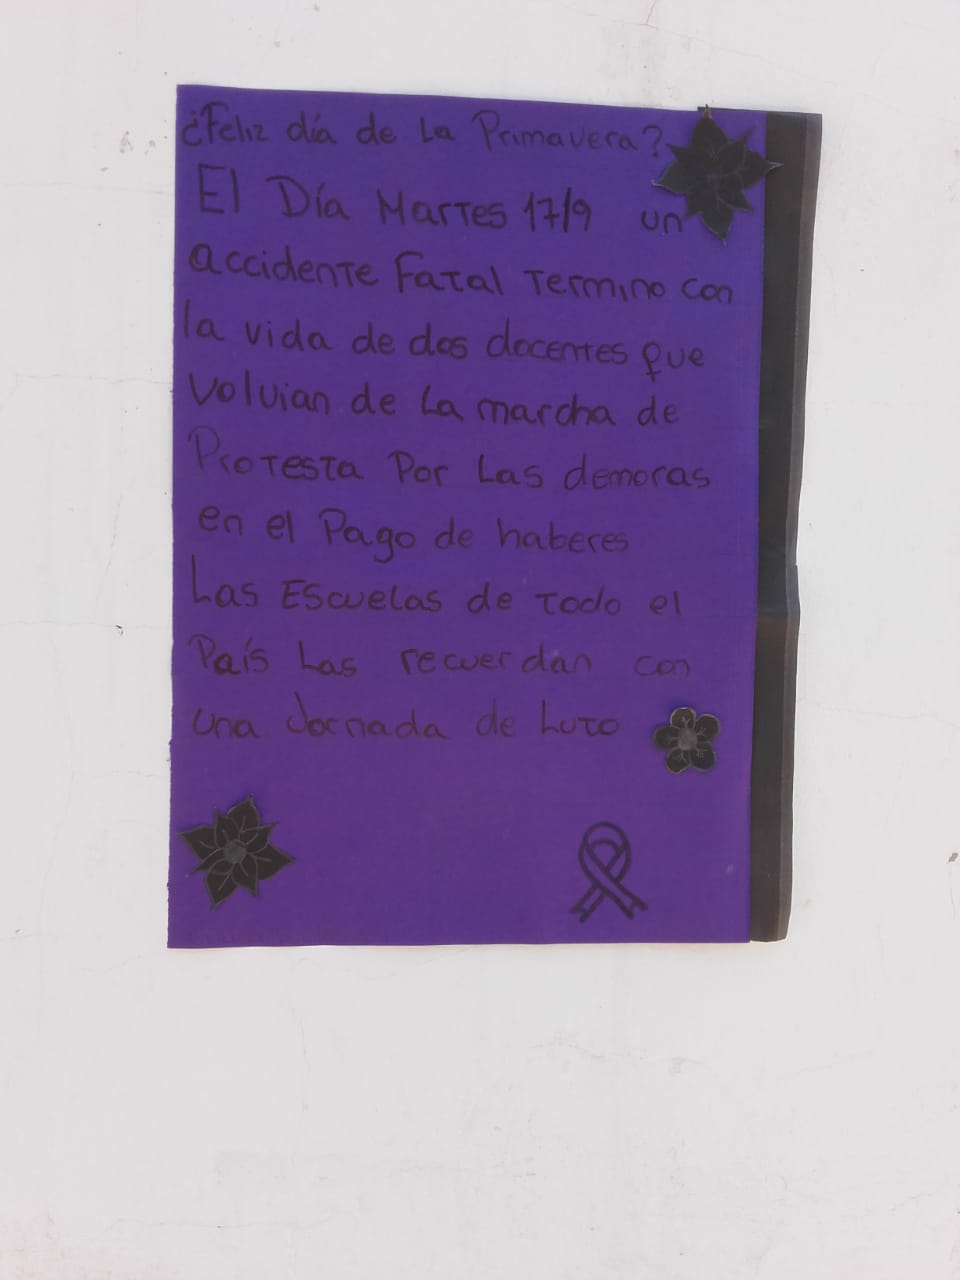 ¿Feliz día de La Primavera?
El Día Martes 17/9 un
accidente Fatal Termino con
la vida de dos docentes que
Volvian de La marcha de
Protesta Por Las demoras
en el Pago de haberes
Las Escuelas de Todo el
País Las recuerdan con
una Jornada de Luto